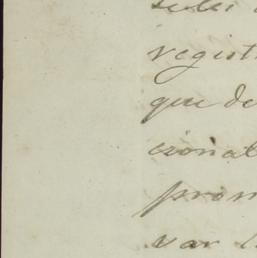 regist
que de
cional
prom
var l